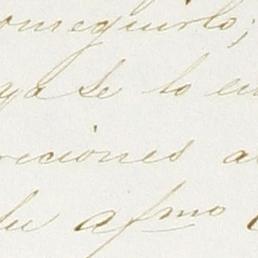 onseguirlo;
ya se lo en
iciones a
su afmo